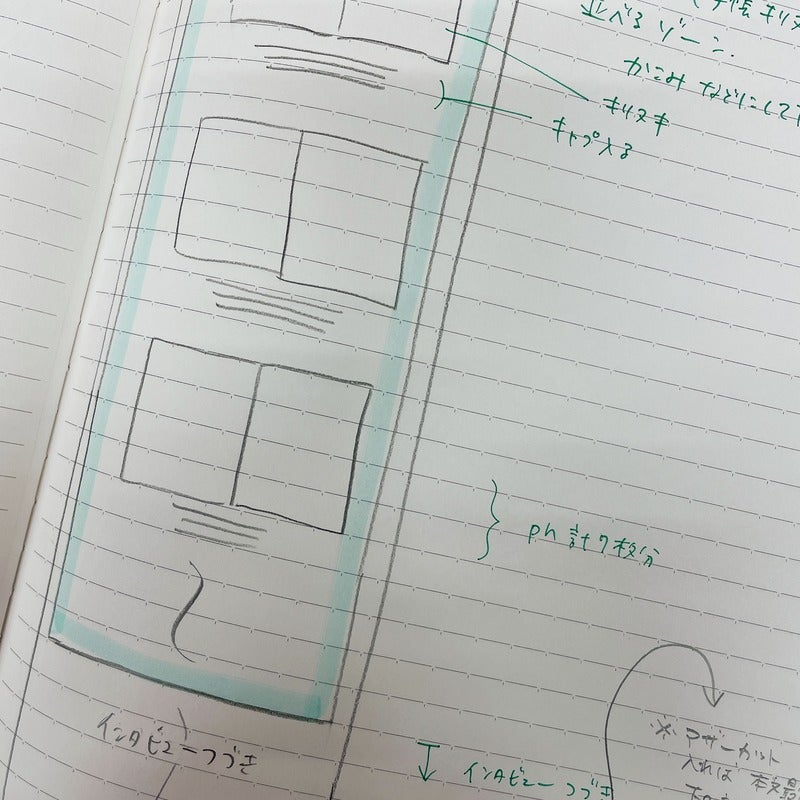 べるゾーン.
かこみ などにして
キリヌキ
キャプ入る
ph 計7枚分
インタビューつづき
インタビュー つづき
※ マザーカット
入れば 本文最